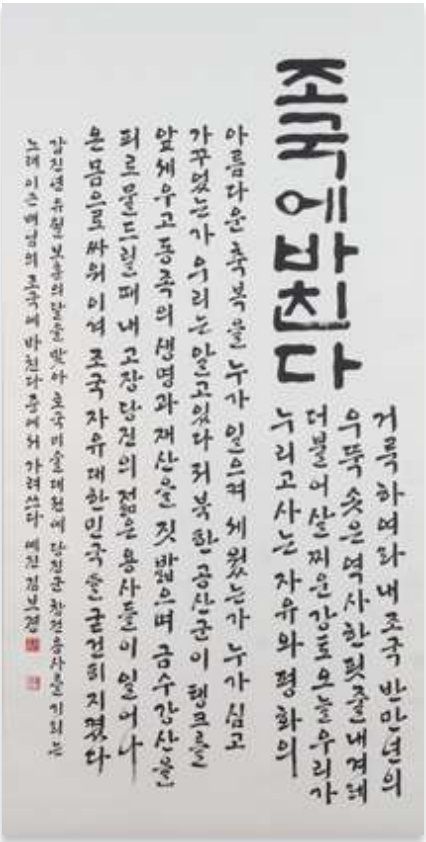 조국에 바친다
거룩하여라 내 조국 반만년의
우뚝 솟은 역사 한 핏줄 내 겨레
더불어 살찌운 강토 오늘 우리가
누리고 사는 자유와 평화의
아름다운 축복을 누가 일으켜 세웠는가 누가 심고
가꾸었는가 우리는 알고 있다 저 북한 공산군이 탱크를
앞세우고 동족의 생명과 재산을 짓밟으며 금수강산을
피로 물드릴 때 내 고장 당진의 젊은 용사들이 일어나
온몸으로 싸워 이겨 조국 자유대한민국을 굳건히 지켰다
갑진년 유월 보훈의 달을 맞아 호국미술대전에 당진군 참전용사를 기리는
노래 이근배님의 조국에 바친다 중에서 가려쓰다 예진 김보경